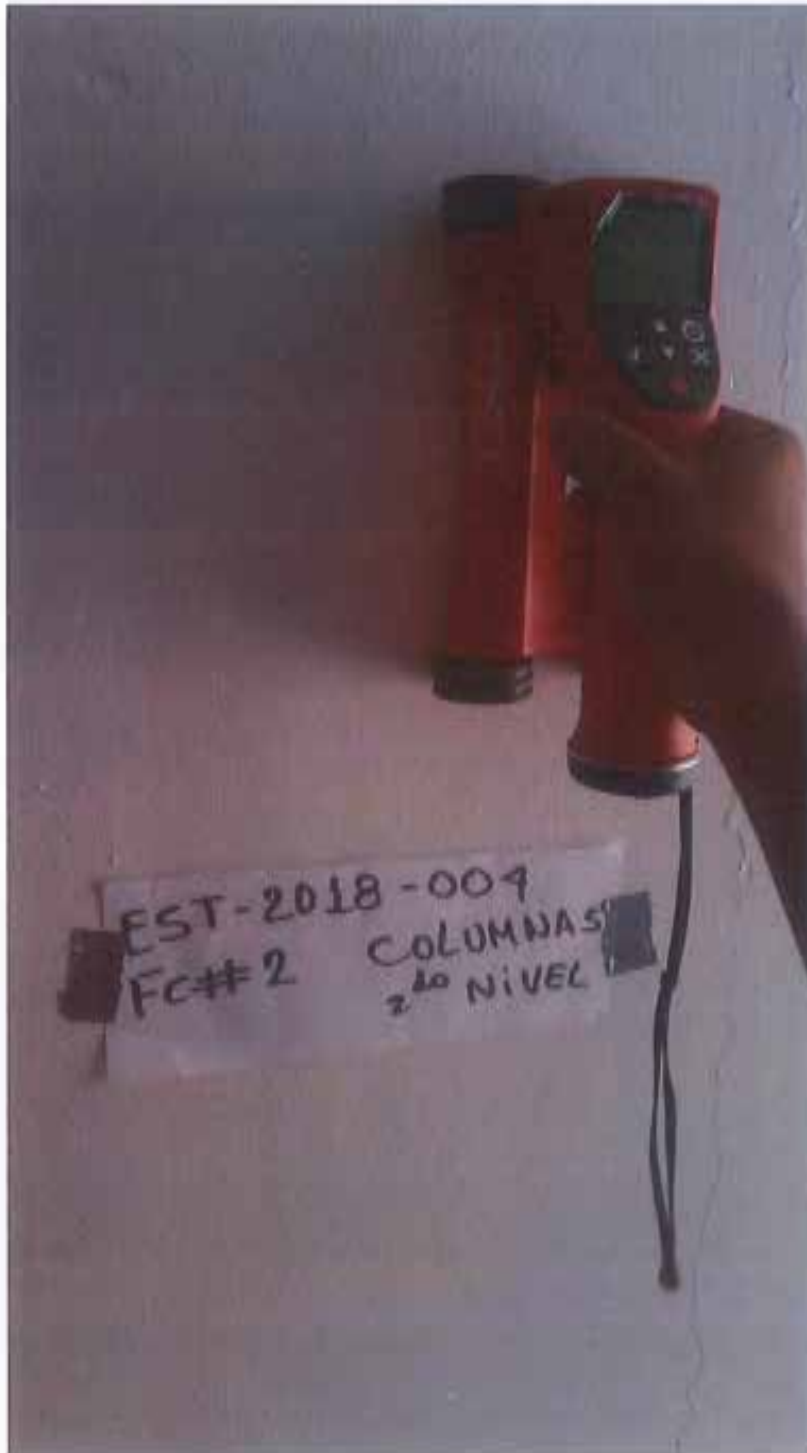 EST-2018-004
FC#2 COLUMNAS
2do NIVEL